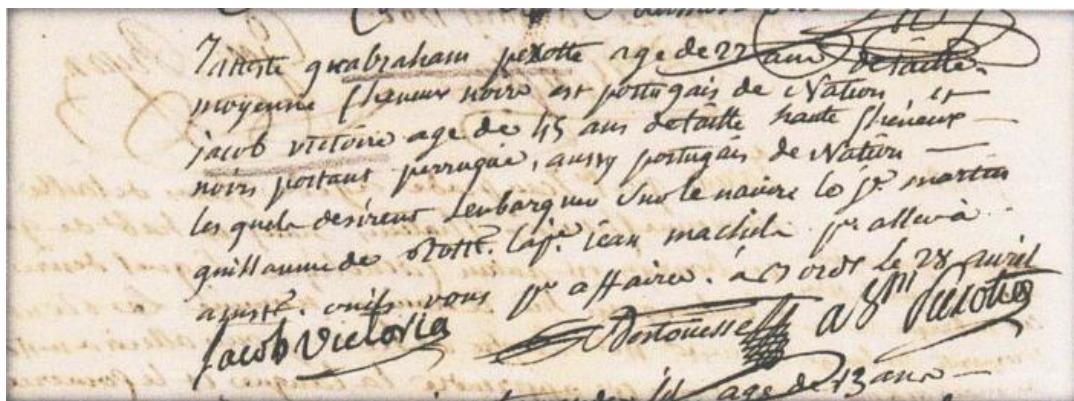 J'atteste qu'abraham pexotte age de 22 ans de taille
moyenne Cheveux noirs est portugais de Nation et
jacob victoire age de 45 ans de taille haute Cheveux
noirs portant perruque, aussy portugais de Nation
les quels desirent s'enbarquer sur le navire le jne martin
guillaume de Rottm. cape. jean machila pr aller à
amstm. ou ils vont pr affaire. à Bords le 28 avril
Jacob Victoria Dostouesse abm pexotto
age de 13 ans